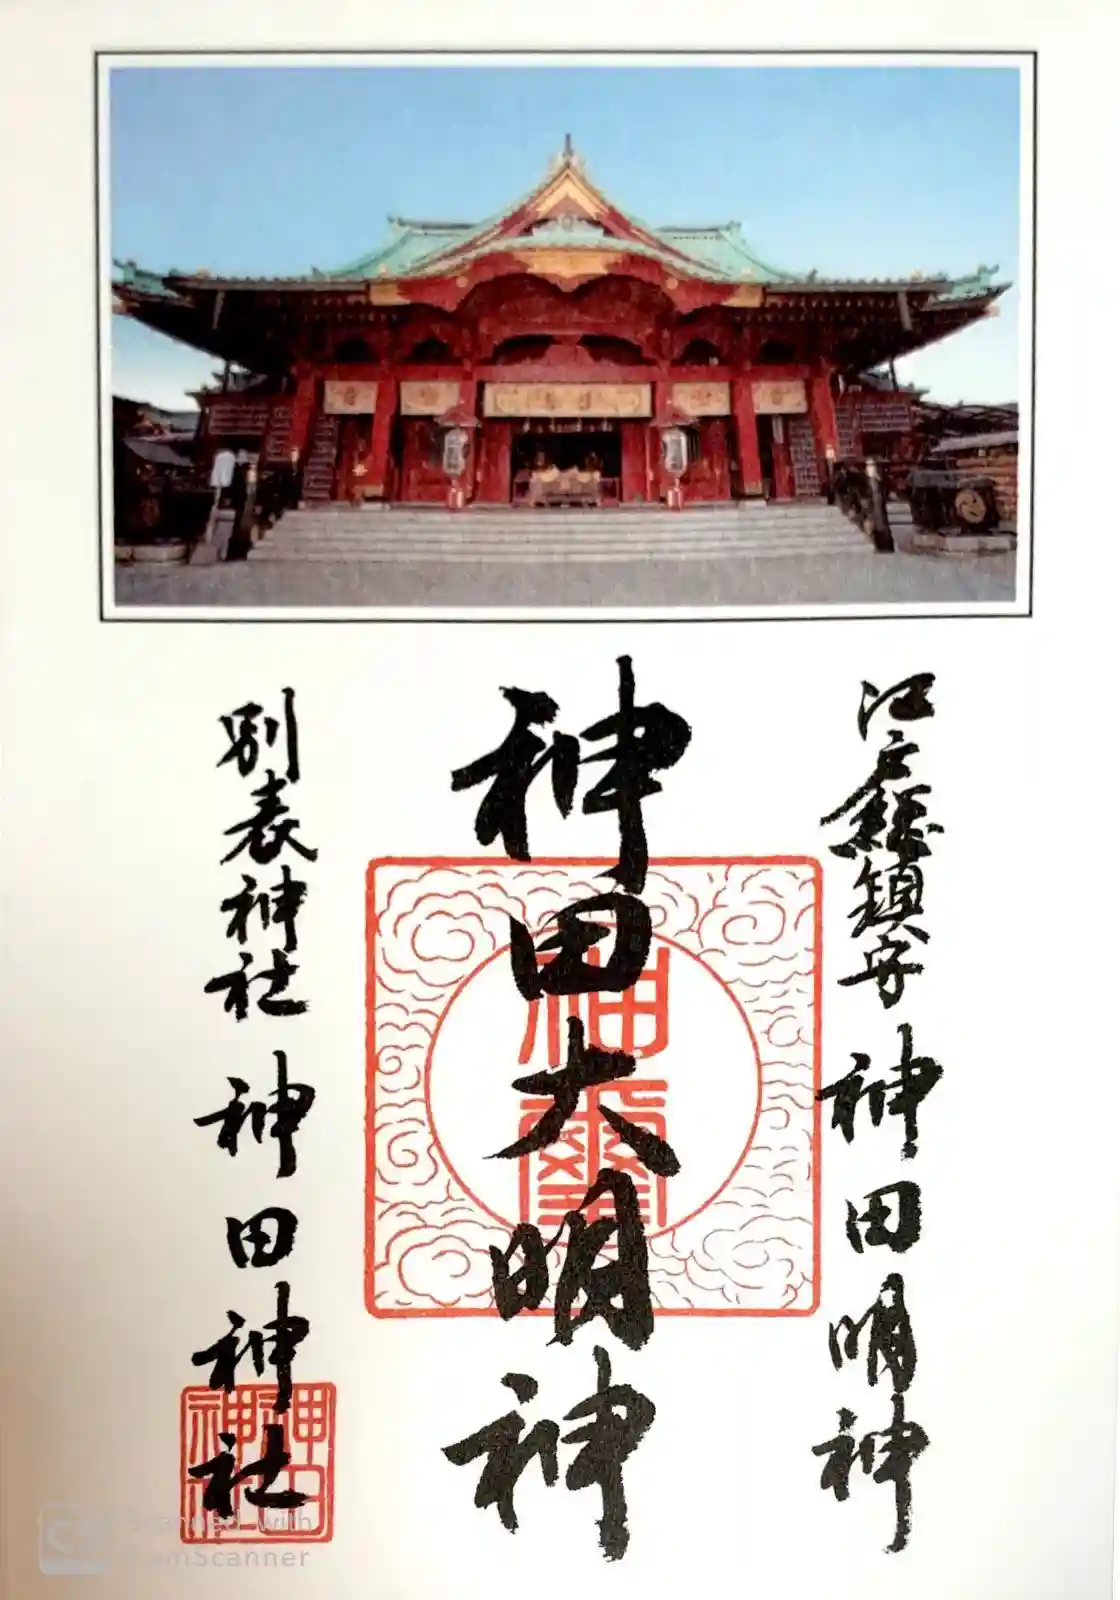 江戸総鎮守 神田明神
神田大明神
別表神社 神田神社
神璽
神田神社
Scanned with
CamScanner